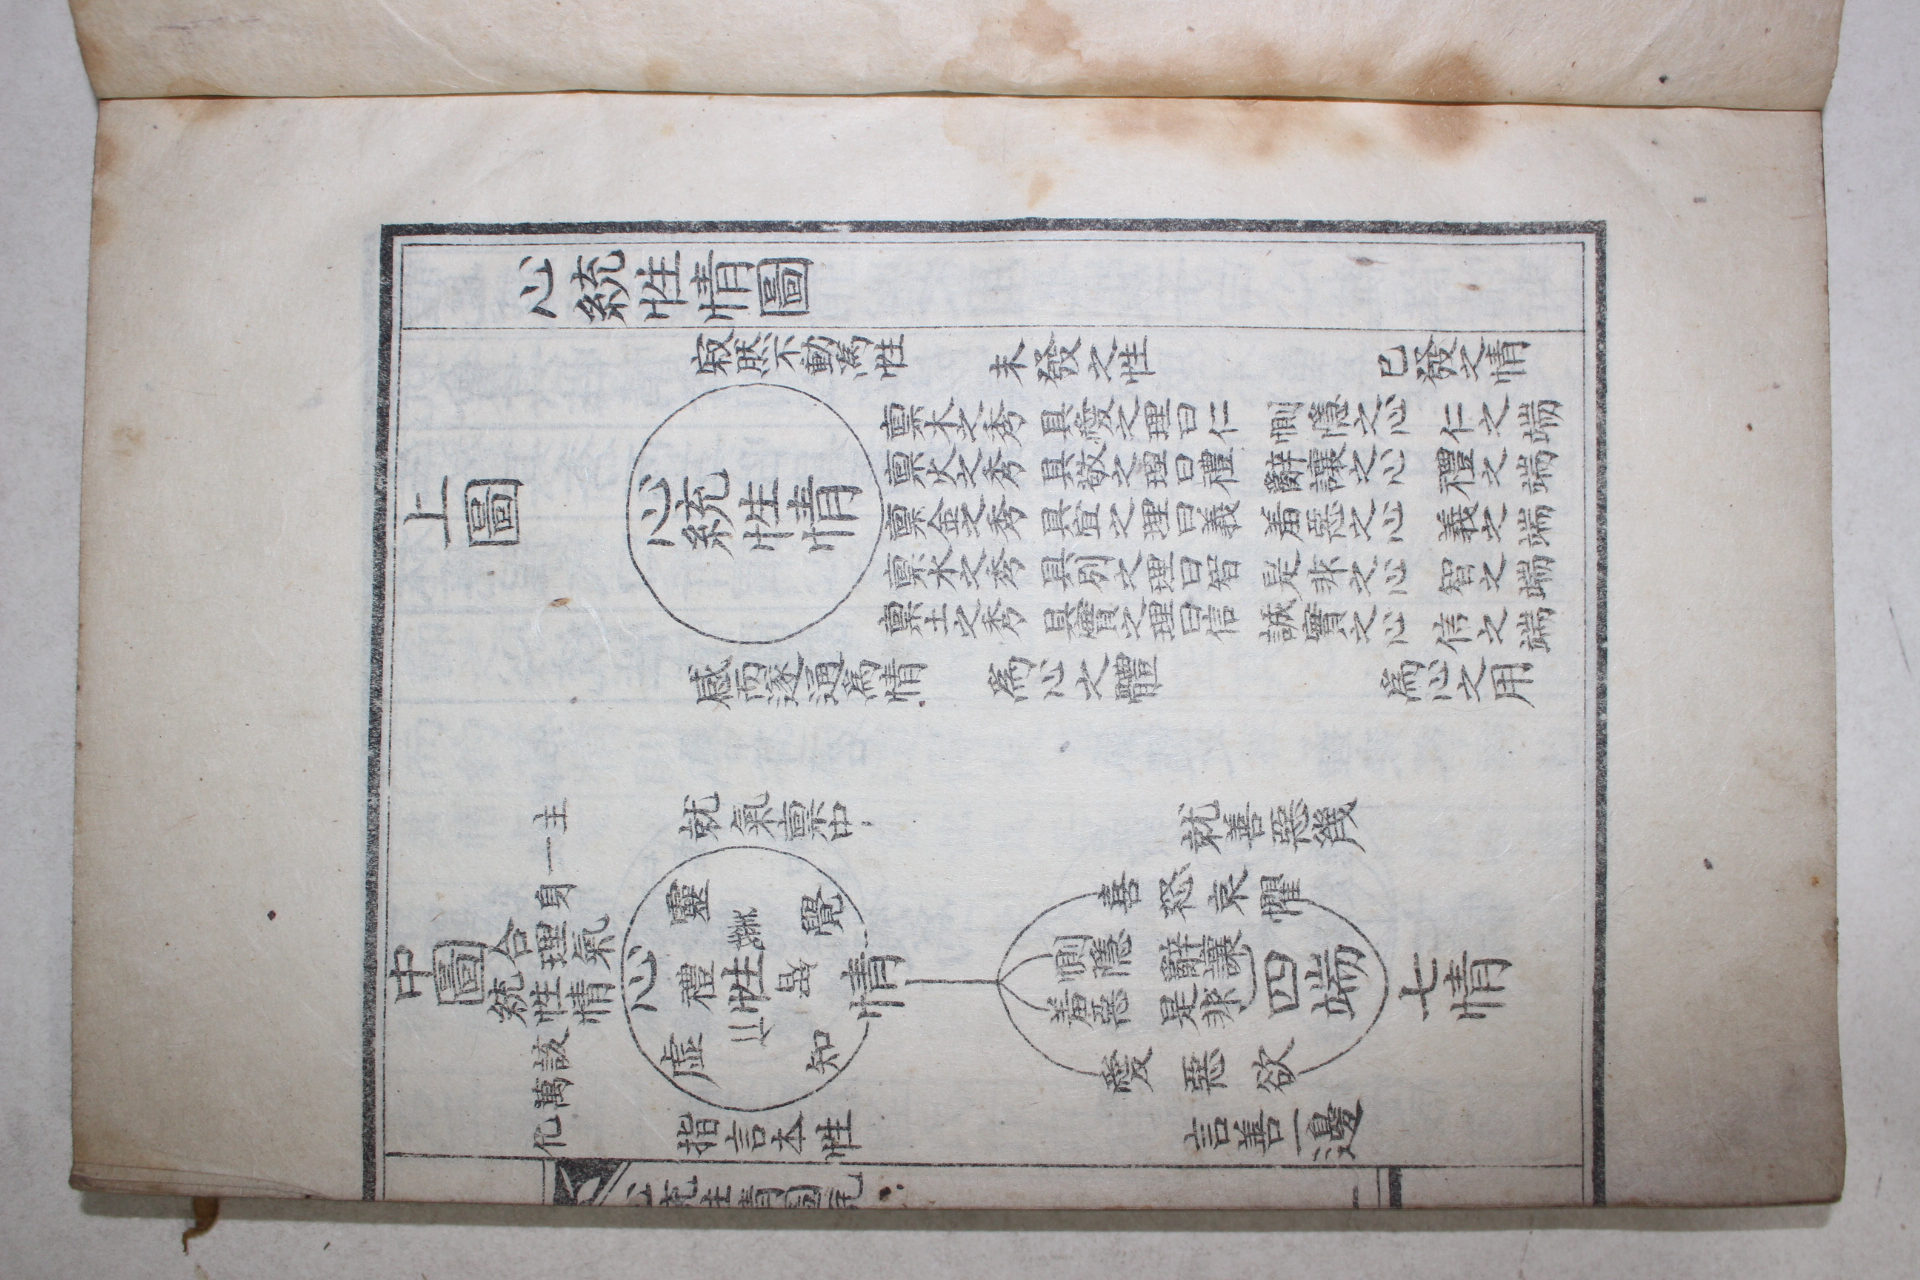 心統性情圖
上圖
心統性情
寂然不動爲性
未發之性
已發之情
稟木之秀 具愛之理曰仁 惻隱之心 仁之端
稟火之秀 具敬之理曰禮 辭讓之心 禮之端
稟金之秀 具宜之理曰義 羞惡之心 義之端
稟水之秀 具別之理曰智 是非之心 智之端
稟土之秀 具實之理曰信 誠實之心 信之端
感而遂通爲情
爲心之體
爲心之用
中圖
合理氣
統性情
主一身
該萬化
心
靈
虛
禮
仁
性
義
智
知
覺
情
就氣稟中
指言本性
惻隱
羞惡
辭讓
是非
四端
喜
怒
哀
懼
愛
惡
欲
七情
就善惡幾
言善一邊
心統性情圖說